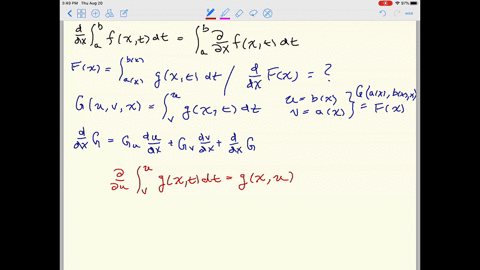 3:40 PM Thu Aug 20
95%
d/dx ∫_a^b f(x,t) dt = ∫_a^b ∂/∂x f(x,t) dt
F(x) = ∫_{a(x)}^{b(x)} g(x,t) dt / d/dx F(x) = ?
G(u,v,x) = ∫_v^u g(x,t) dt u = b(x) v = a(x) } G(a(x), b(x), x) = F(x)
d/dx G = G_u du/dx + G_v dv/dx + d/dx G
∂/∂u ∫_v^u g(x,t) dt = g(x,u)